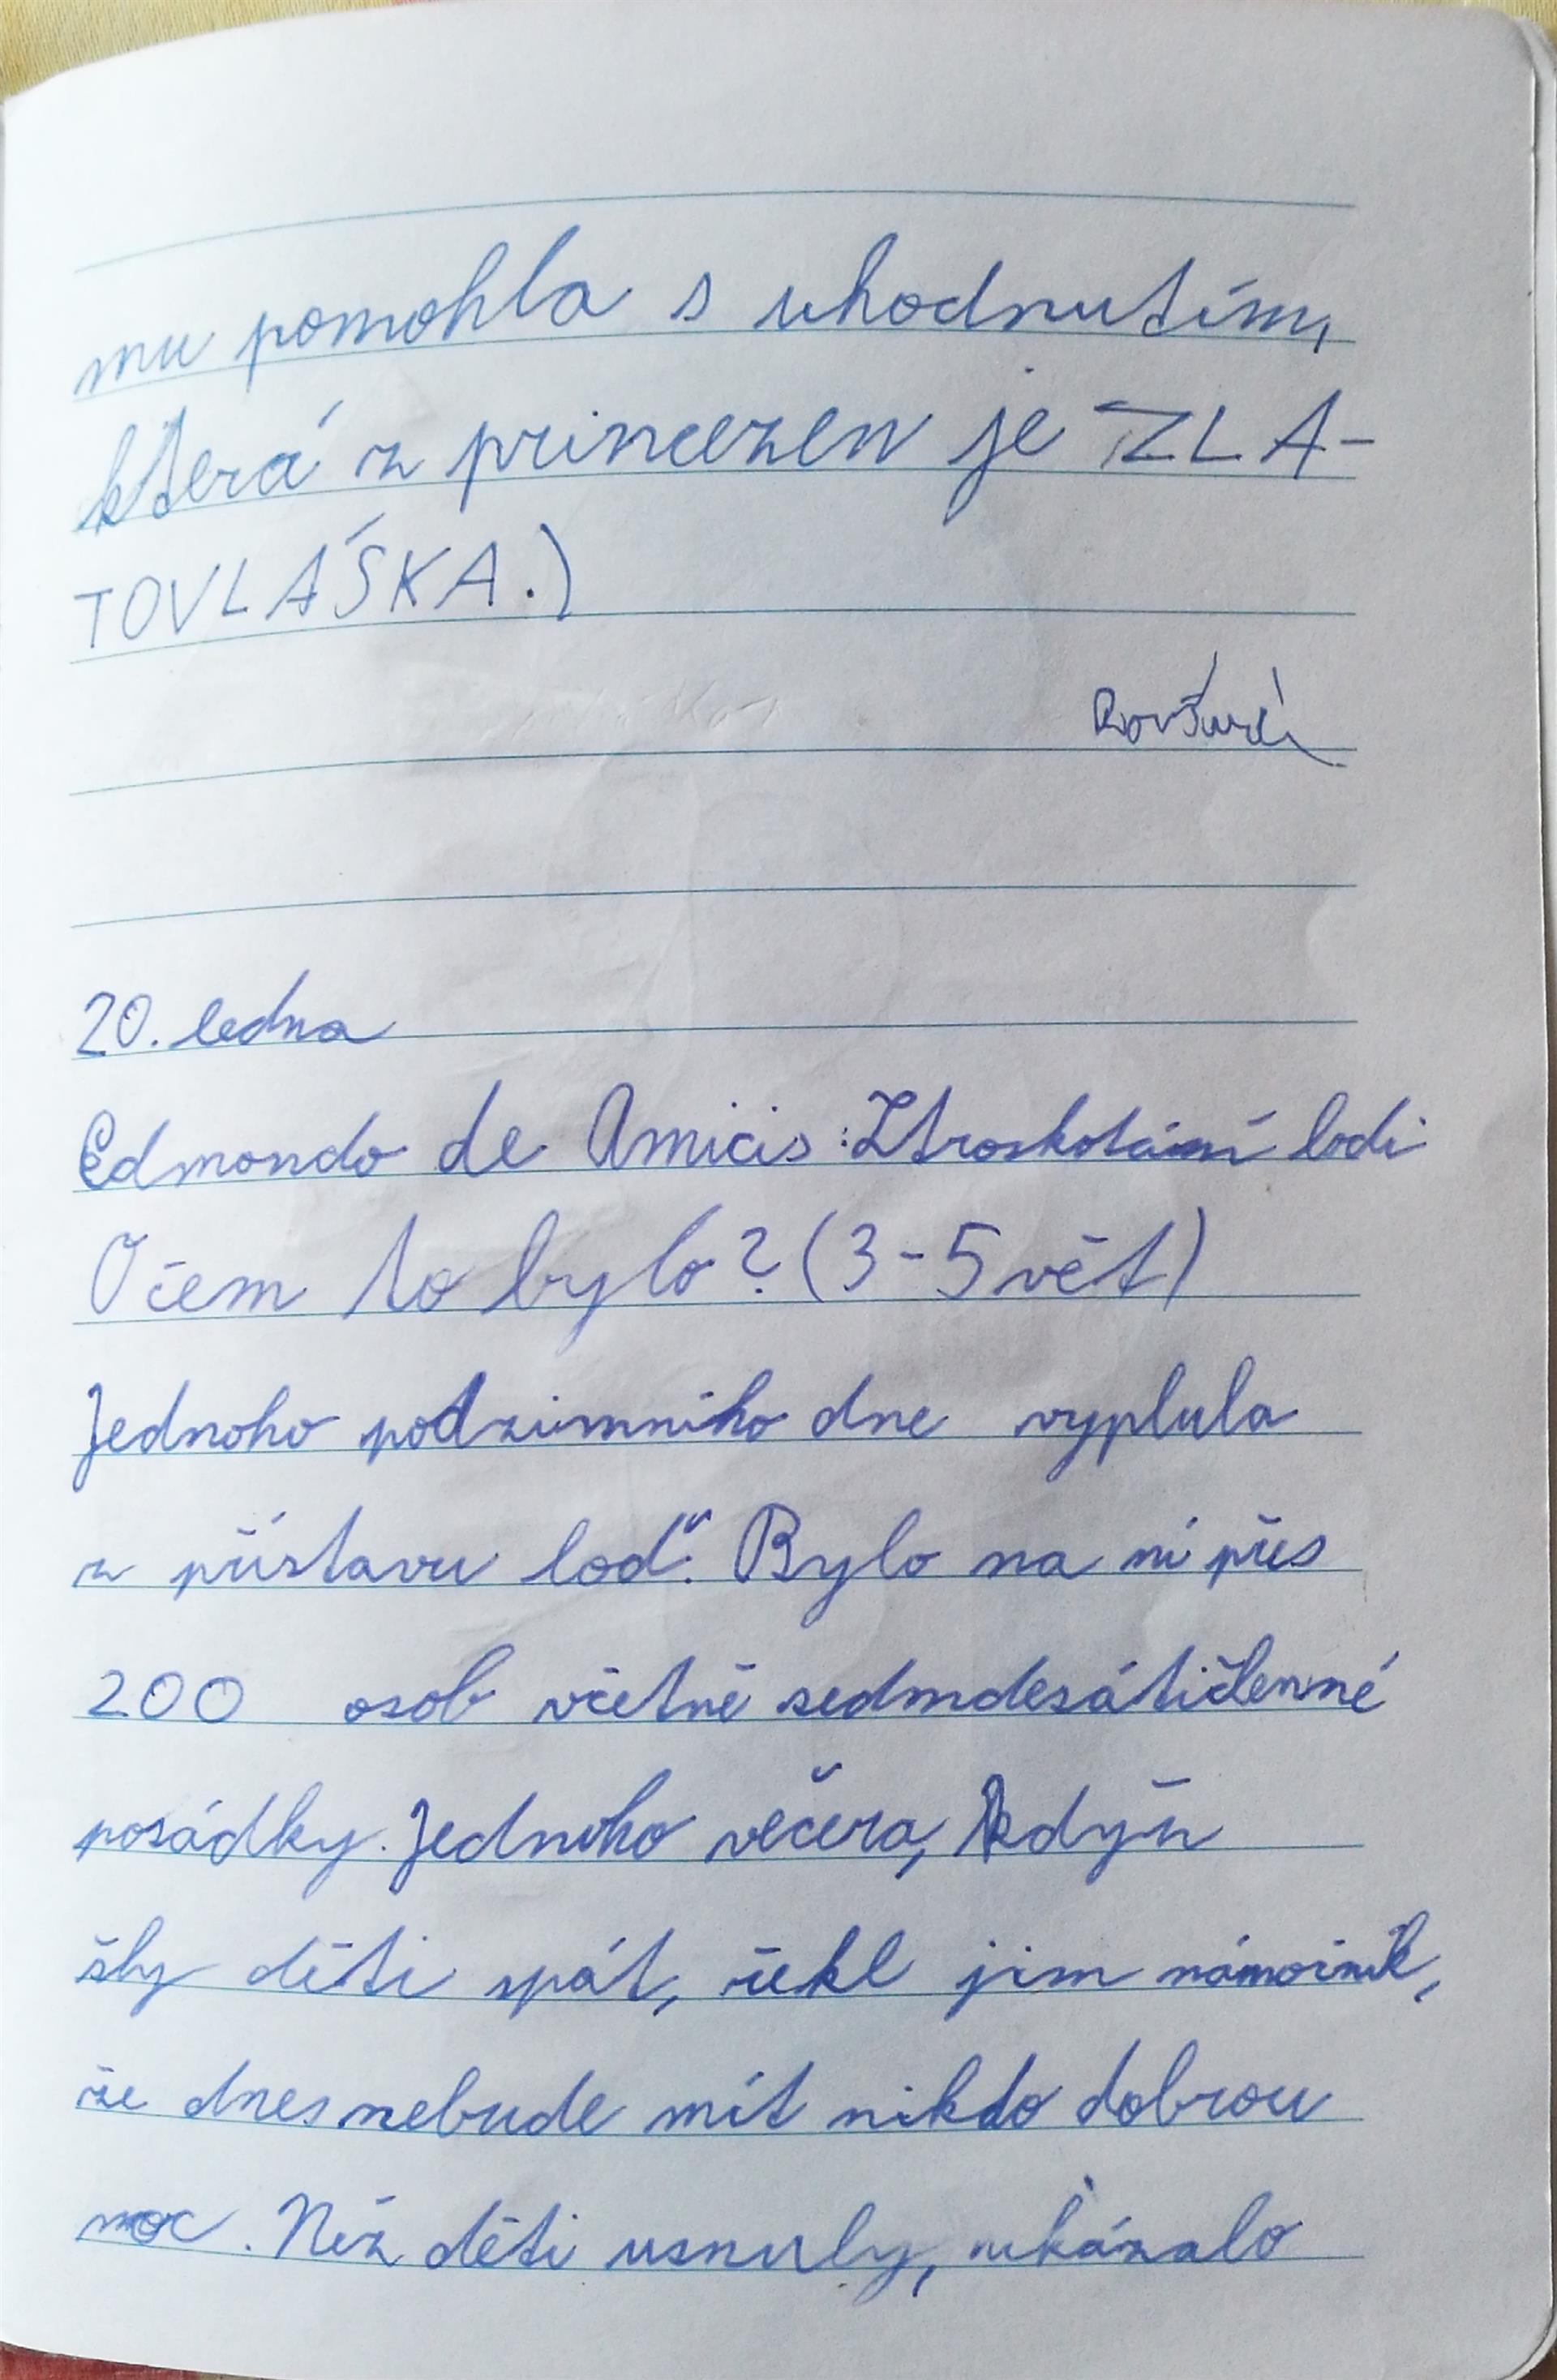 mu pomohla s uhodnutím,
která z princezen je ZLA-
TOVLÁŠKA.)
20. ledna
Edmondo de Amicis: Ztroskotání lodi
O čem to bylo? (3-5 vět)
Jednoho podzimního dne vyplula
z přístavu loď. Bylo na ní přes
200 osob včetně sedmdesátičlenné
posádky. Jednoho večera, když
šly děti spát, řekl jim námořník,
že dnes nebude mít nikdo dobrou
noc. Než děti usnuly, ukázalo